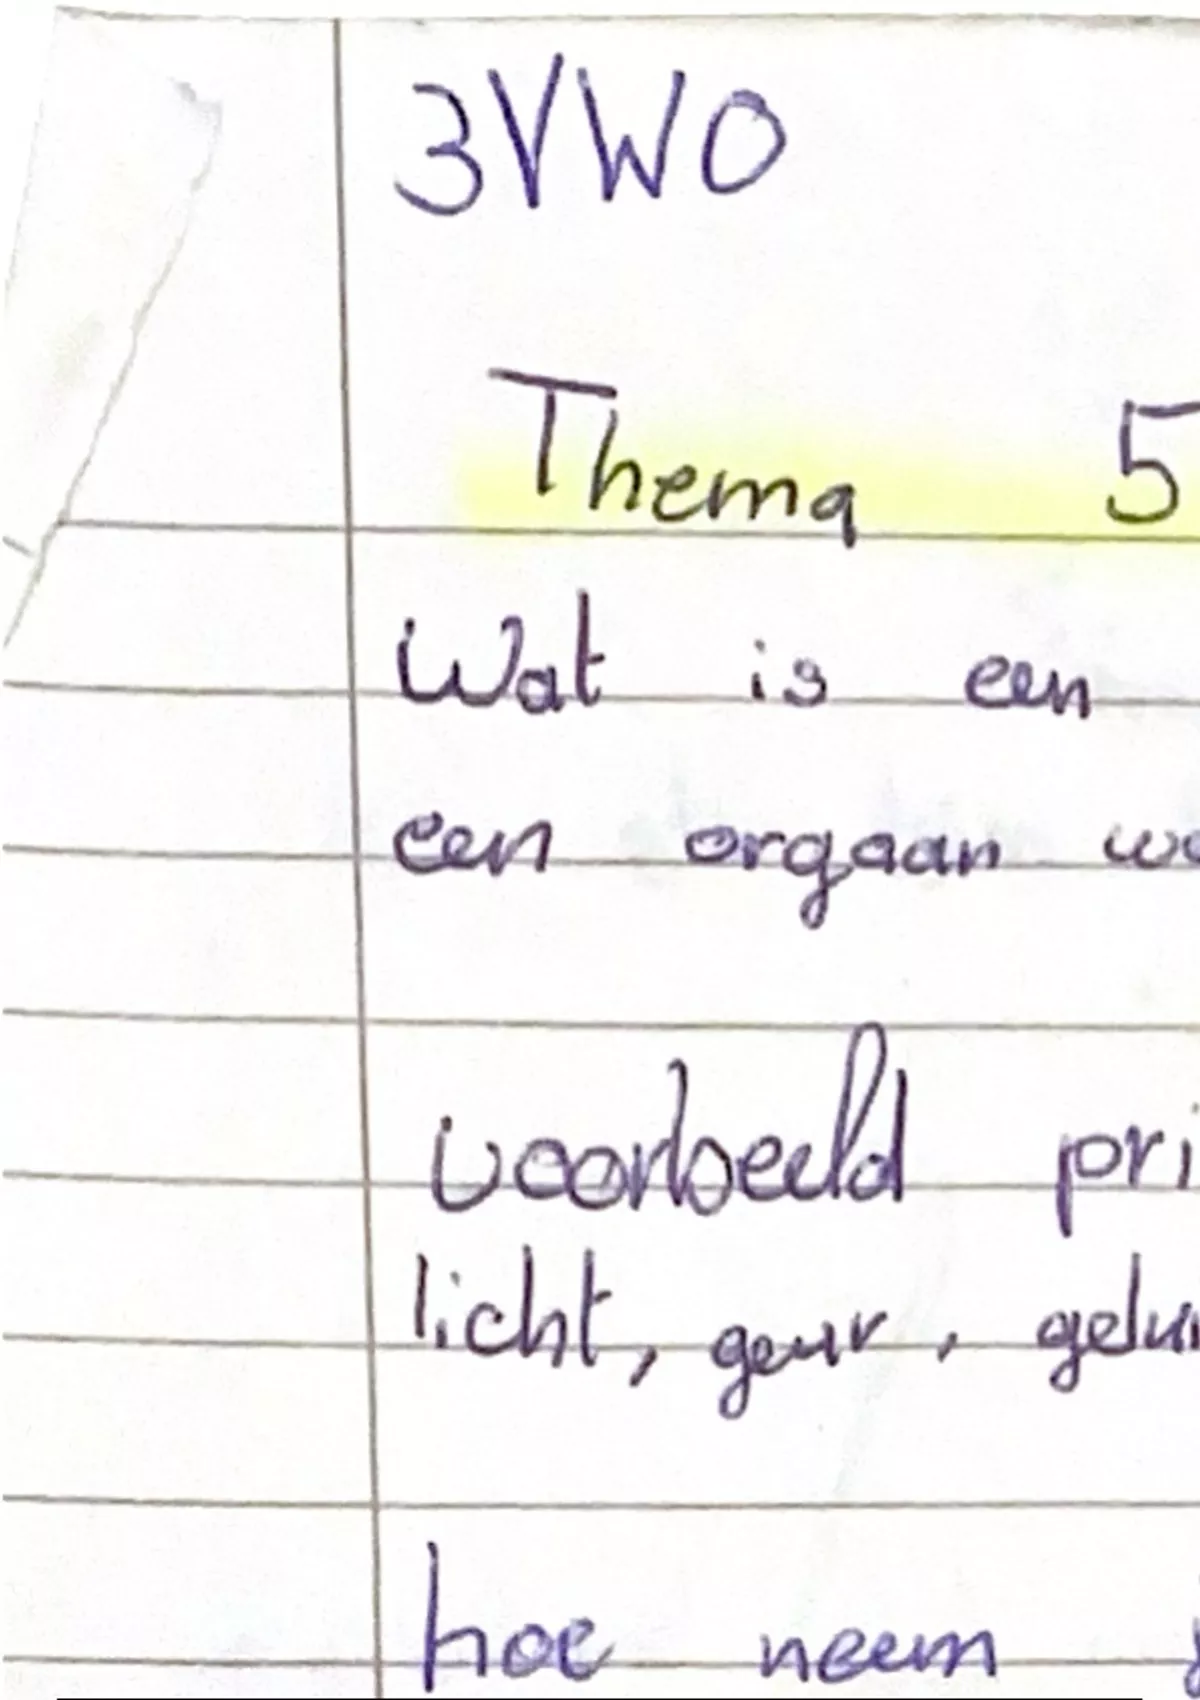 3VWO
Thema 5
Wat is een
een orgaan
voorbeeld
licht, geur,
hoe neem